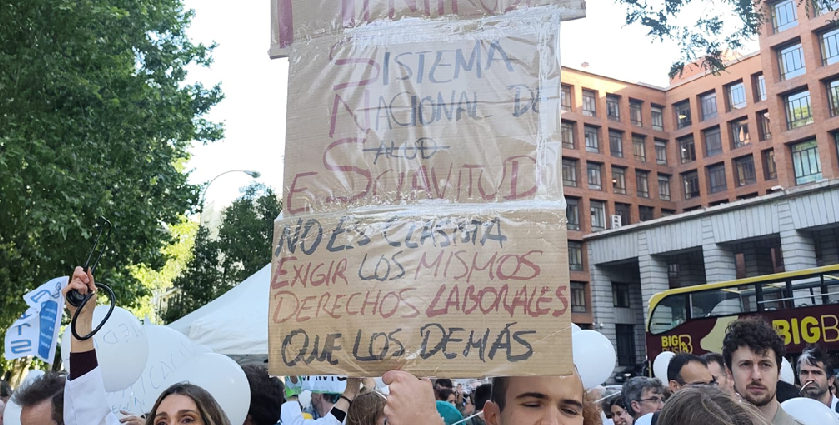 SISTEMA
NACIONAL DE
SALUD
ESCLAVITUD
NO ES CLASISTA
EXIGIR LOS MISMOS
DERECHOS LABORALES
QUE LOS DEMÁS
BIG BU
BIGB